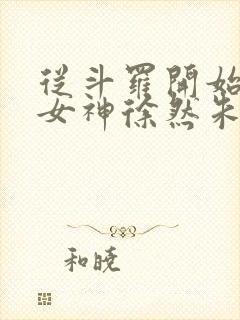 從斗羅開始
女神徐然朱
和曉